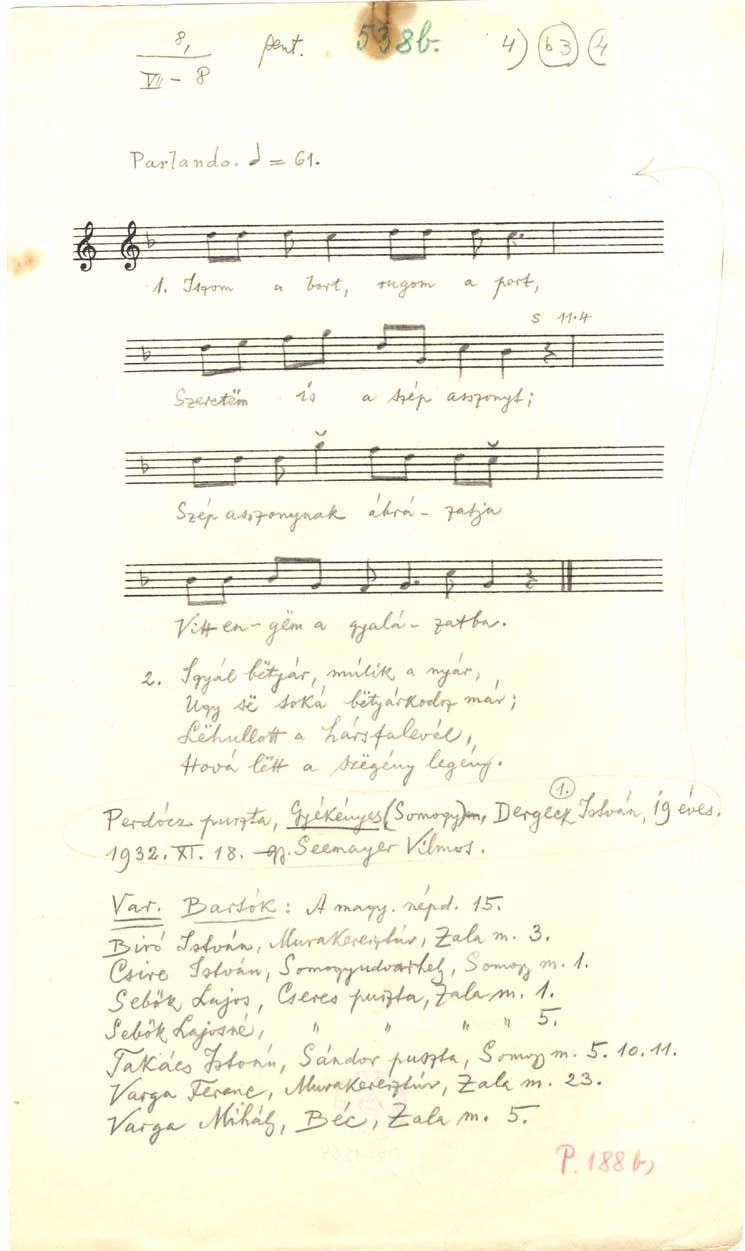 8,
VII - 8
pent. 538b. 4) (b3) (4
Parlando. = 61.
1. Iszom a bort, rugom a port,
s 11.4
Szeretëm is a szép asszonyt;
Szép asszonynak ábrá - zatja
Vitt en - gëm a gyalá - zatba.
2. Igyál bëtyár, múlik a nyár,
Ugy së soká bëtyárkodsz már;
Lëhullott a hársfalevél,
Hová lëtt a szëgény legény.
Perdócz puszta, Gyékényes (Somogy), Dergecz István, 19 éves.
1.
1932. XI. 18. gy. Seemayer Vilmos.
Var. Bartók: A magy. népd. 15.
Biró István, Murakeresztúr, Zala m. 3.
Csire István, Somogyudvarhely, Somogy m. 1.
Sebők Lajos, Cseres puszta, Zala m. 1.
Sebők Lajosné, " " " " 5.
Takács István, Sándor puszta, Somogy m. 5. 10. 11.
Varga Ferenc, Murakeresztúr, Zala m. 23.
Varga Mihály, Béc, Zala m. 5.
P. 188b,